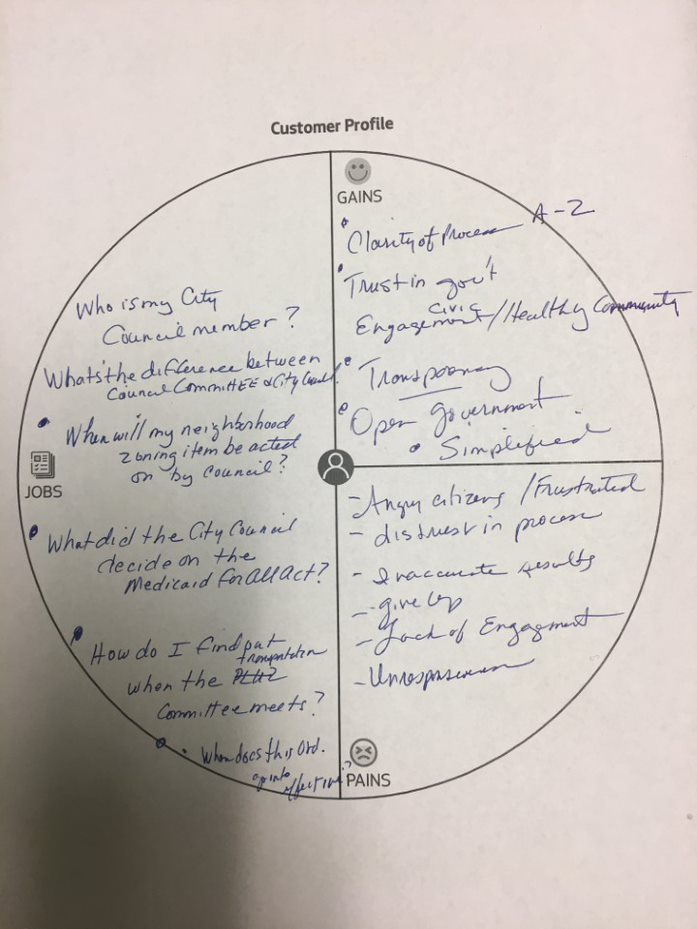 Customer Profile
GAINS
A-Z
Clarity of Process
Trust in gov't
Civic
Engagement/Healthy Community
Transparency
Open Government
Simplified
Who is my City
Council member?
What's the difference between
Council Committee & City Council?
When will my neighborhood
zoning item be acted
on by Council?
JOBS
What did the City Council
decide on the
Medicaid for All Act?
How do I find out
transportation
when the
Committee meets?
When does this Ord.
go into
effect
- Angry citizens / Frustrated
- distrust in process
- Inaccurate results
- give up
- Lack of Engagement
PAINS